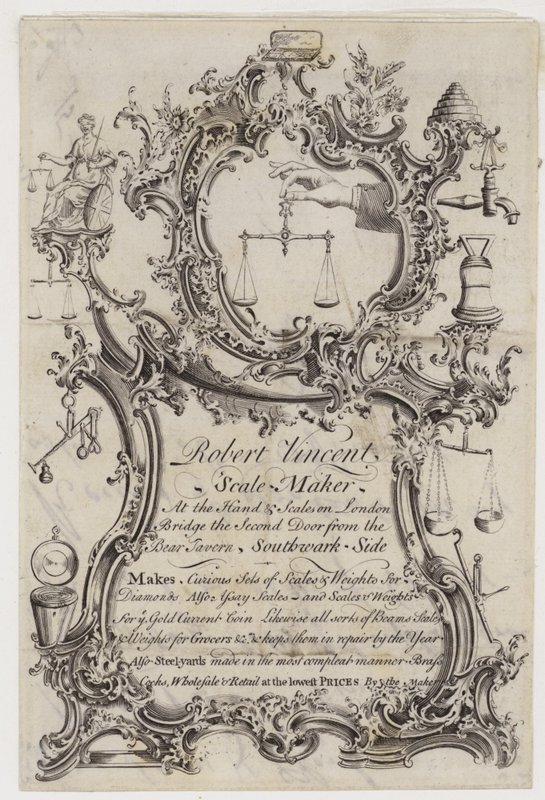 Robert Vincent
Scale-Maker
At the Hand & Scales on London
Bridge the Second Door from the
Bear Tavern, Southwark-Side
Makes Curious Sets of Scales & Weights for
Diamonds Also Assay Scales and Scales & Weights
for yͤ Gold Current Coin Likewise all sorts of Beams Scales
& Weights for Grocers &c. & keeps them in repair by the Year
Also Steel-yards made in the most compleat manner Brass
Cocks, Wholesale & Retail at the lowest PRICES By the Maker